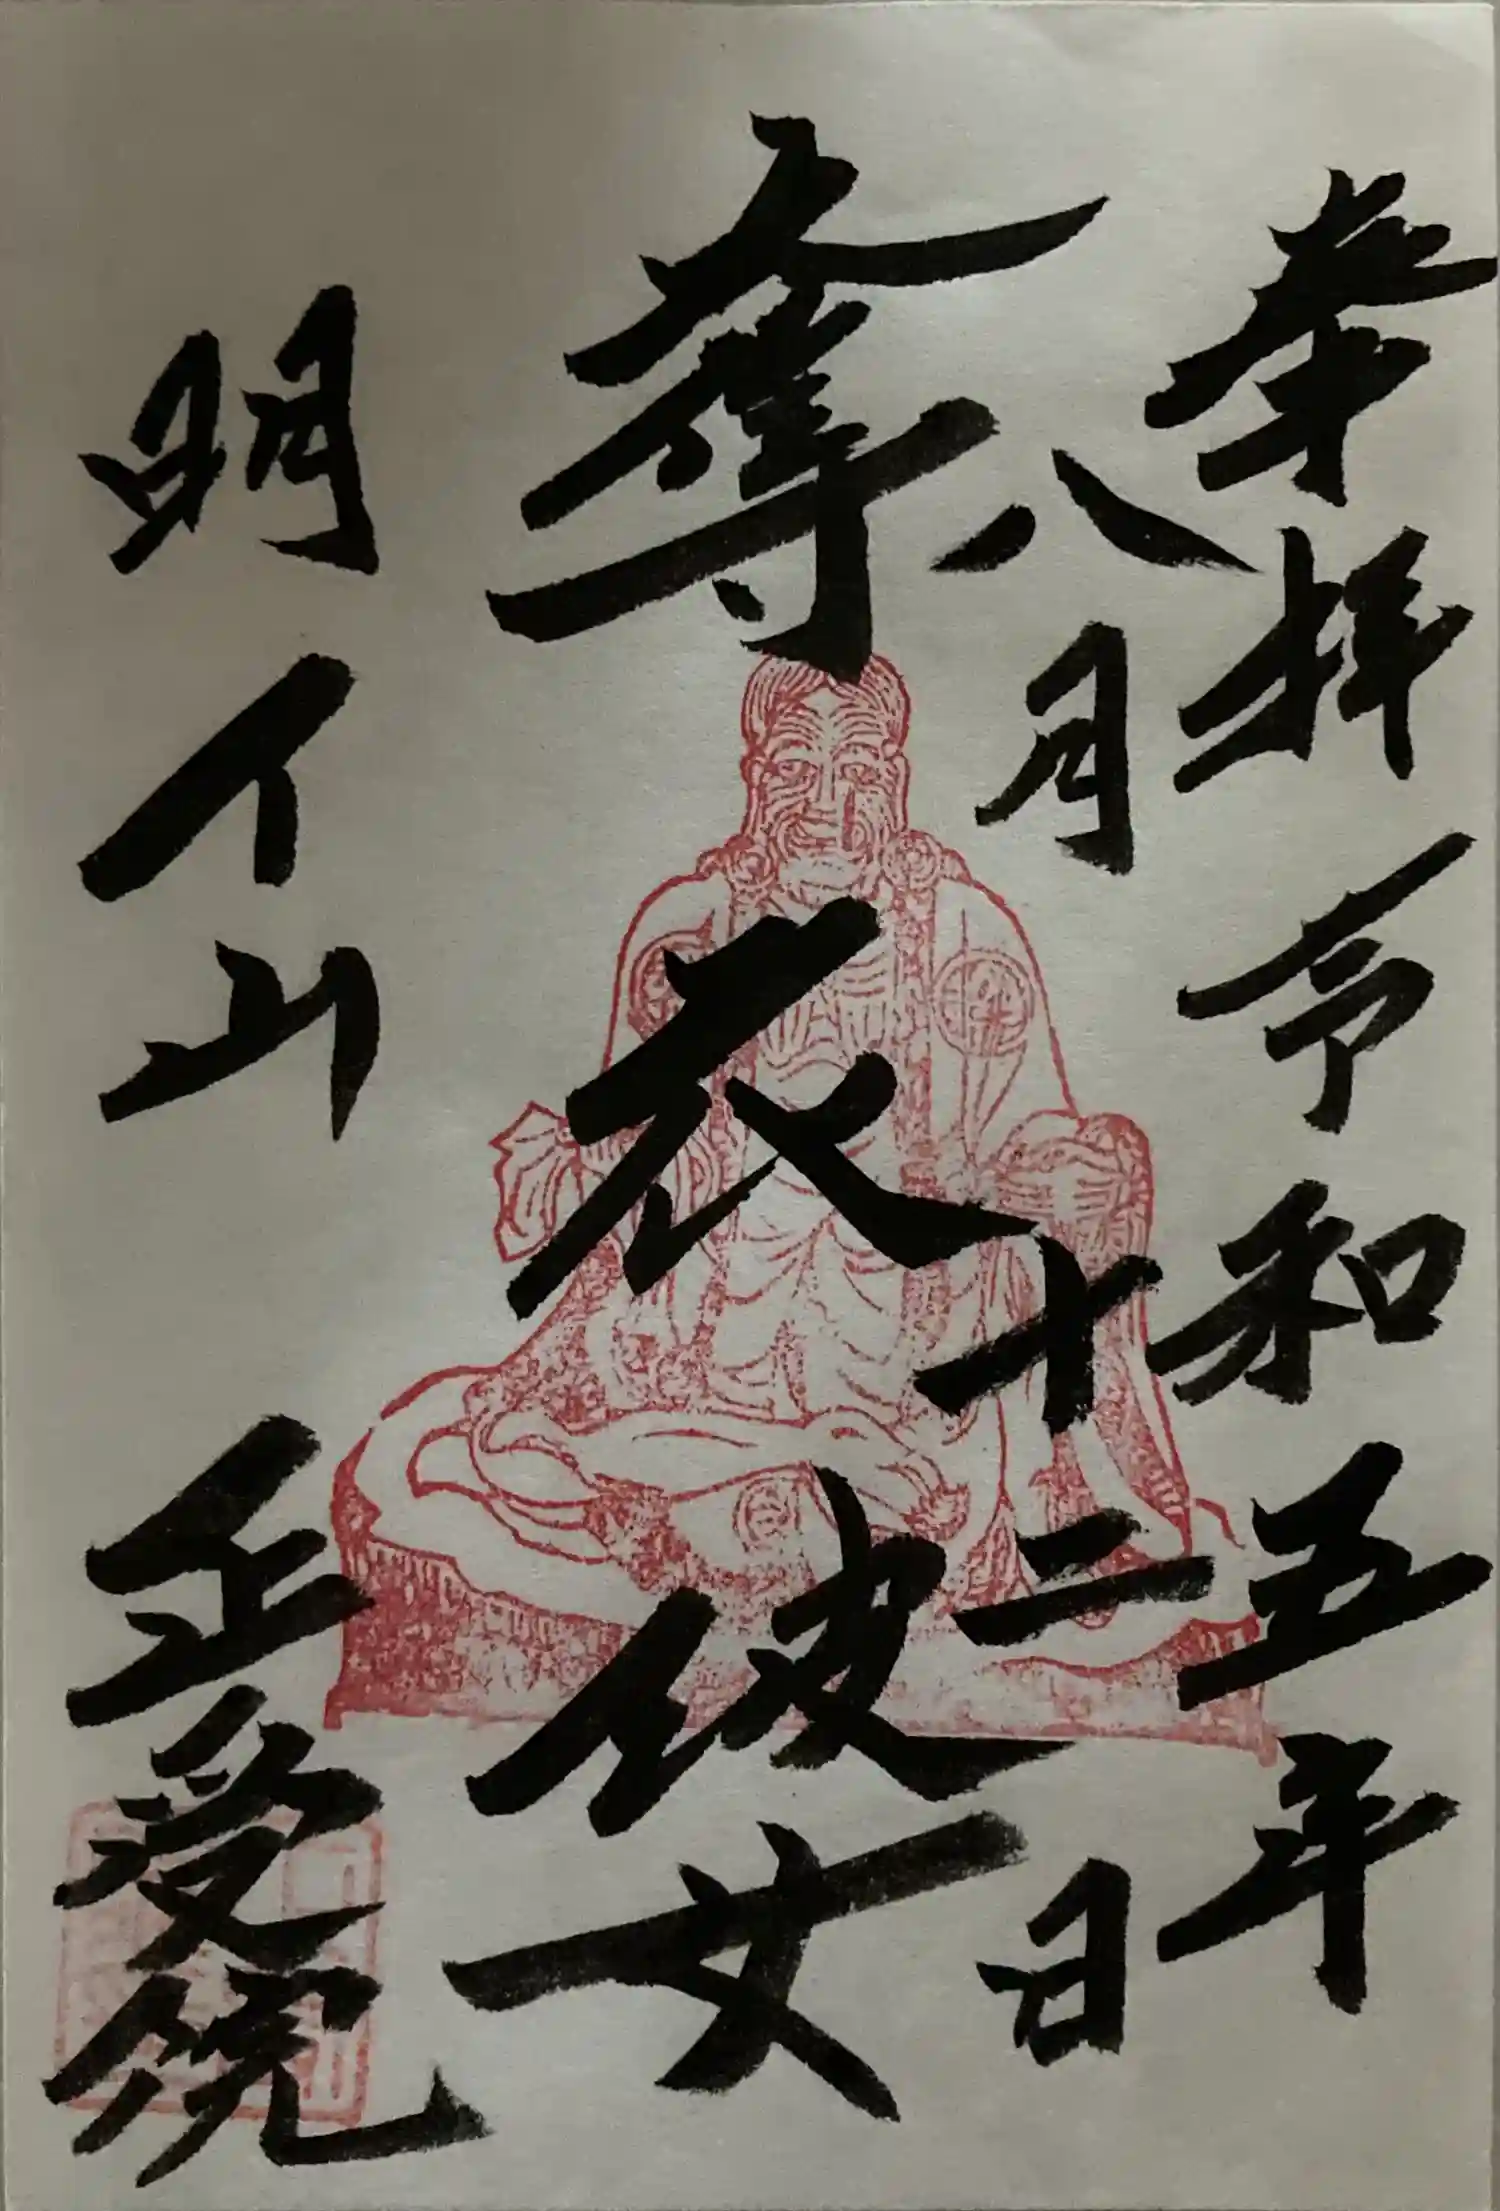 奉拝 令和五年
八月十二日
奪衣婆
明了山 正受院